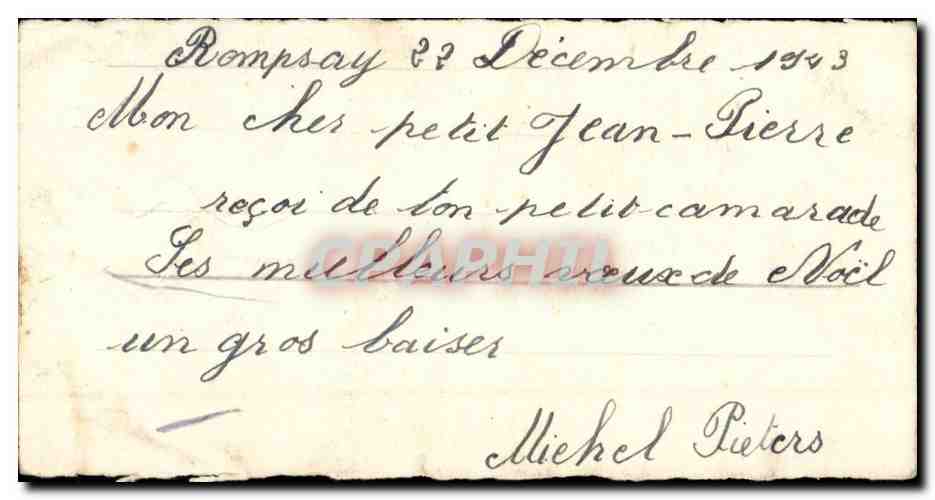 Rompsay 22 Décembre 1943
Mon cher petit Jean-Pierre
reçoi de ton petit camarade
Ses meilleurs vœux de Noël
CPAPHIL
un gros baiser
Michel Pieters